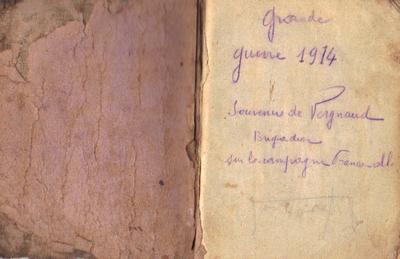 Grande
guerre 1914
Souvenirs de Vergnaud
Brigadier
sur la campagne Franco-All.